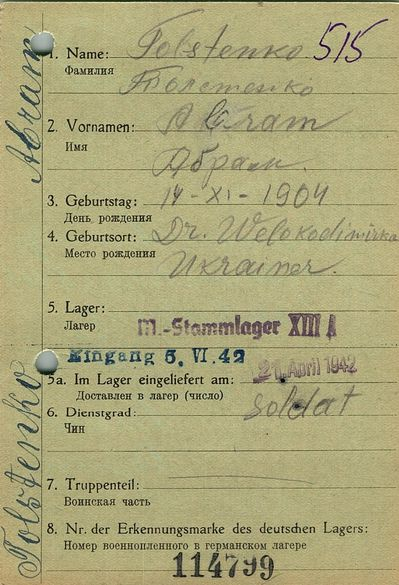 1. Name: Tolstenko 515
Фамилия Толстенко
2. Vornamen: Abram
Имя
Абрам.
3. Geburtstag: 14-XI-1904
День рождения
4. Geburtsort: Dr. Welokodimirka
Место рождения
Ukrainer.
5. Lager:
Лагер
M.-Stammlager XIII A
Eingang 5. VI. 42
21. April 1942
5a. Im Lager eingeliefert am:
Доставлен в лагер (число)
6. Dienstgrad: soldat
Чин
7. Truppenteil:
Воинская часть
8. Nr. der Erkennungsmarke des deutschen Lagers:
Номер военнопленного в германском лагере
114799
Tolstenko Abram